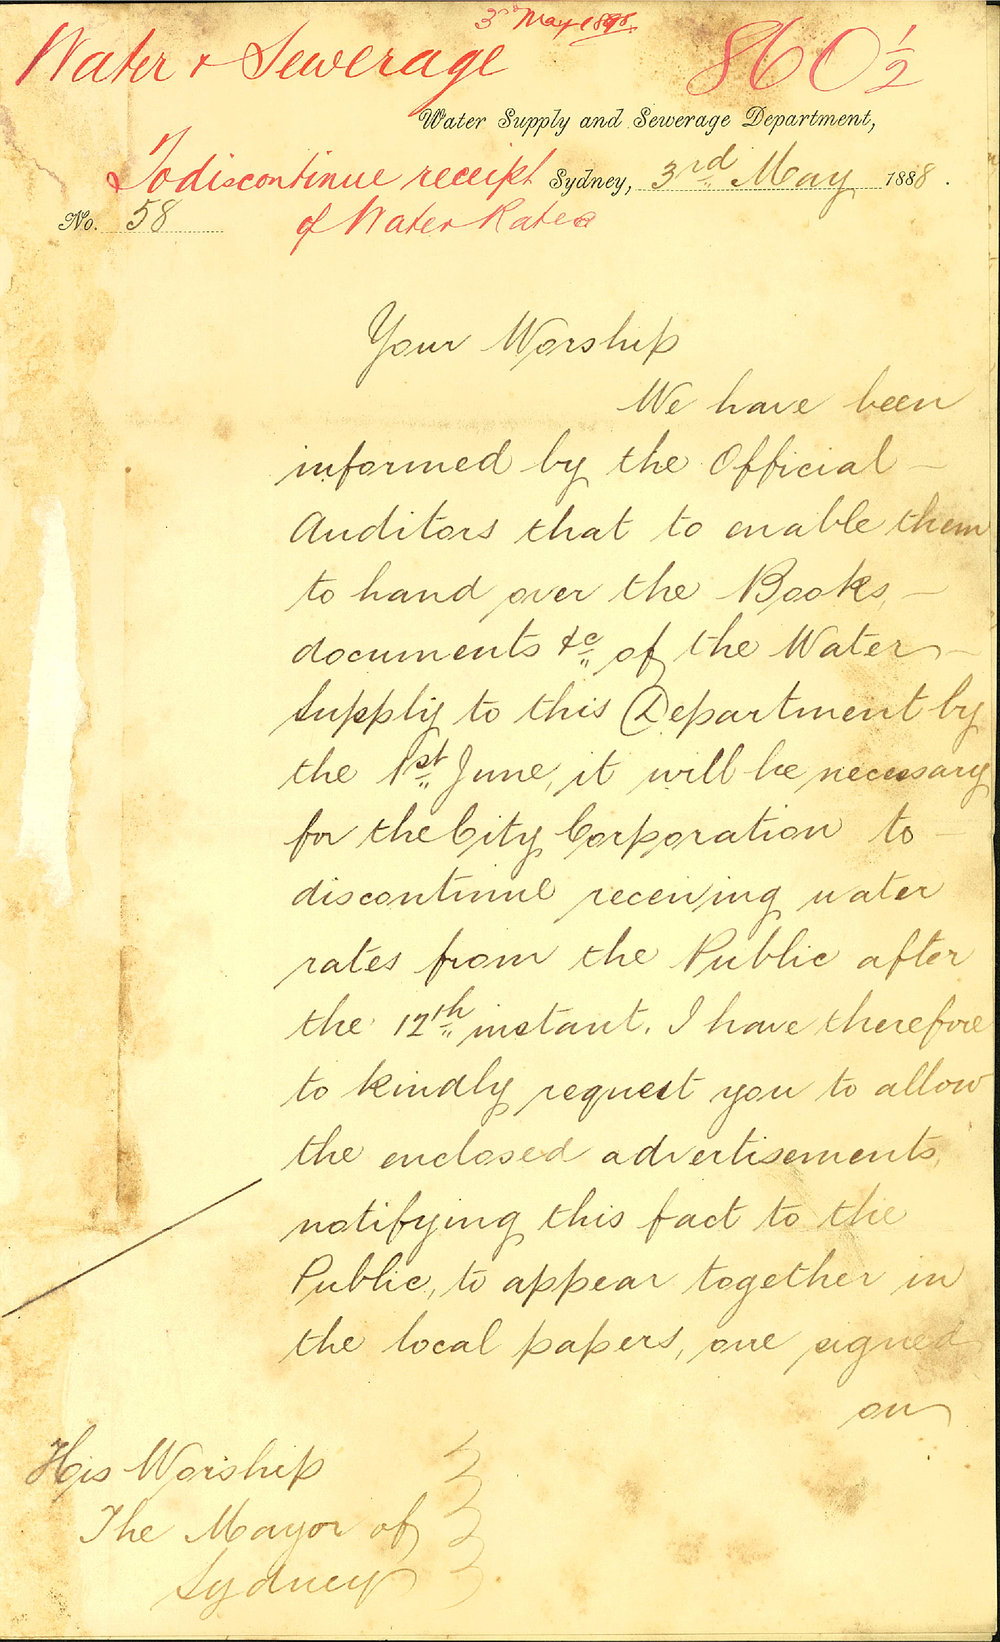 3rd May 1898.
Water & Sewerage
860 1/2
Water Supply and Sewerage Department,
To discontinue receipt
Sydney, 3rd May 1888.
No. 58
of Water Rates
Your Worship
We have been
informed by the Official
Auditors that to enable them
to hand over the Books,
documents &c of the Water
Supply to this Department by
the 1st June, it will be necessary
for the City Corporation to
discontinue receiving water
rates from the Public after
the 12th instant. I have therefore
to kindly request you to allow
the enclosed advertisements,
notifying this fact to the
Public, to appear together in
the local papers, one signed
on
His Worship
The Mayor of
Sydney